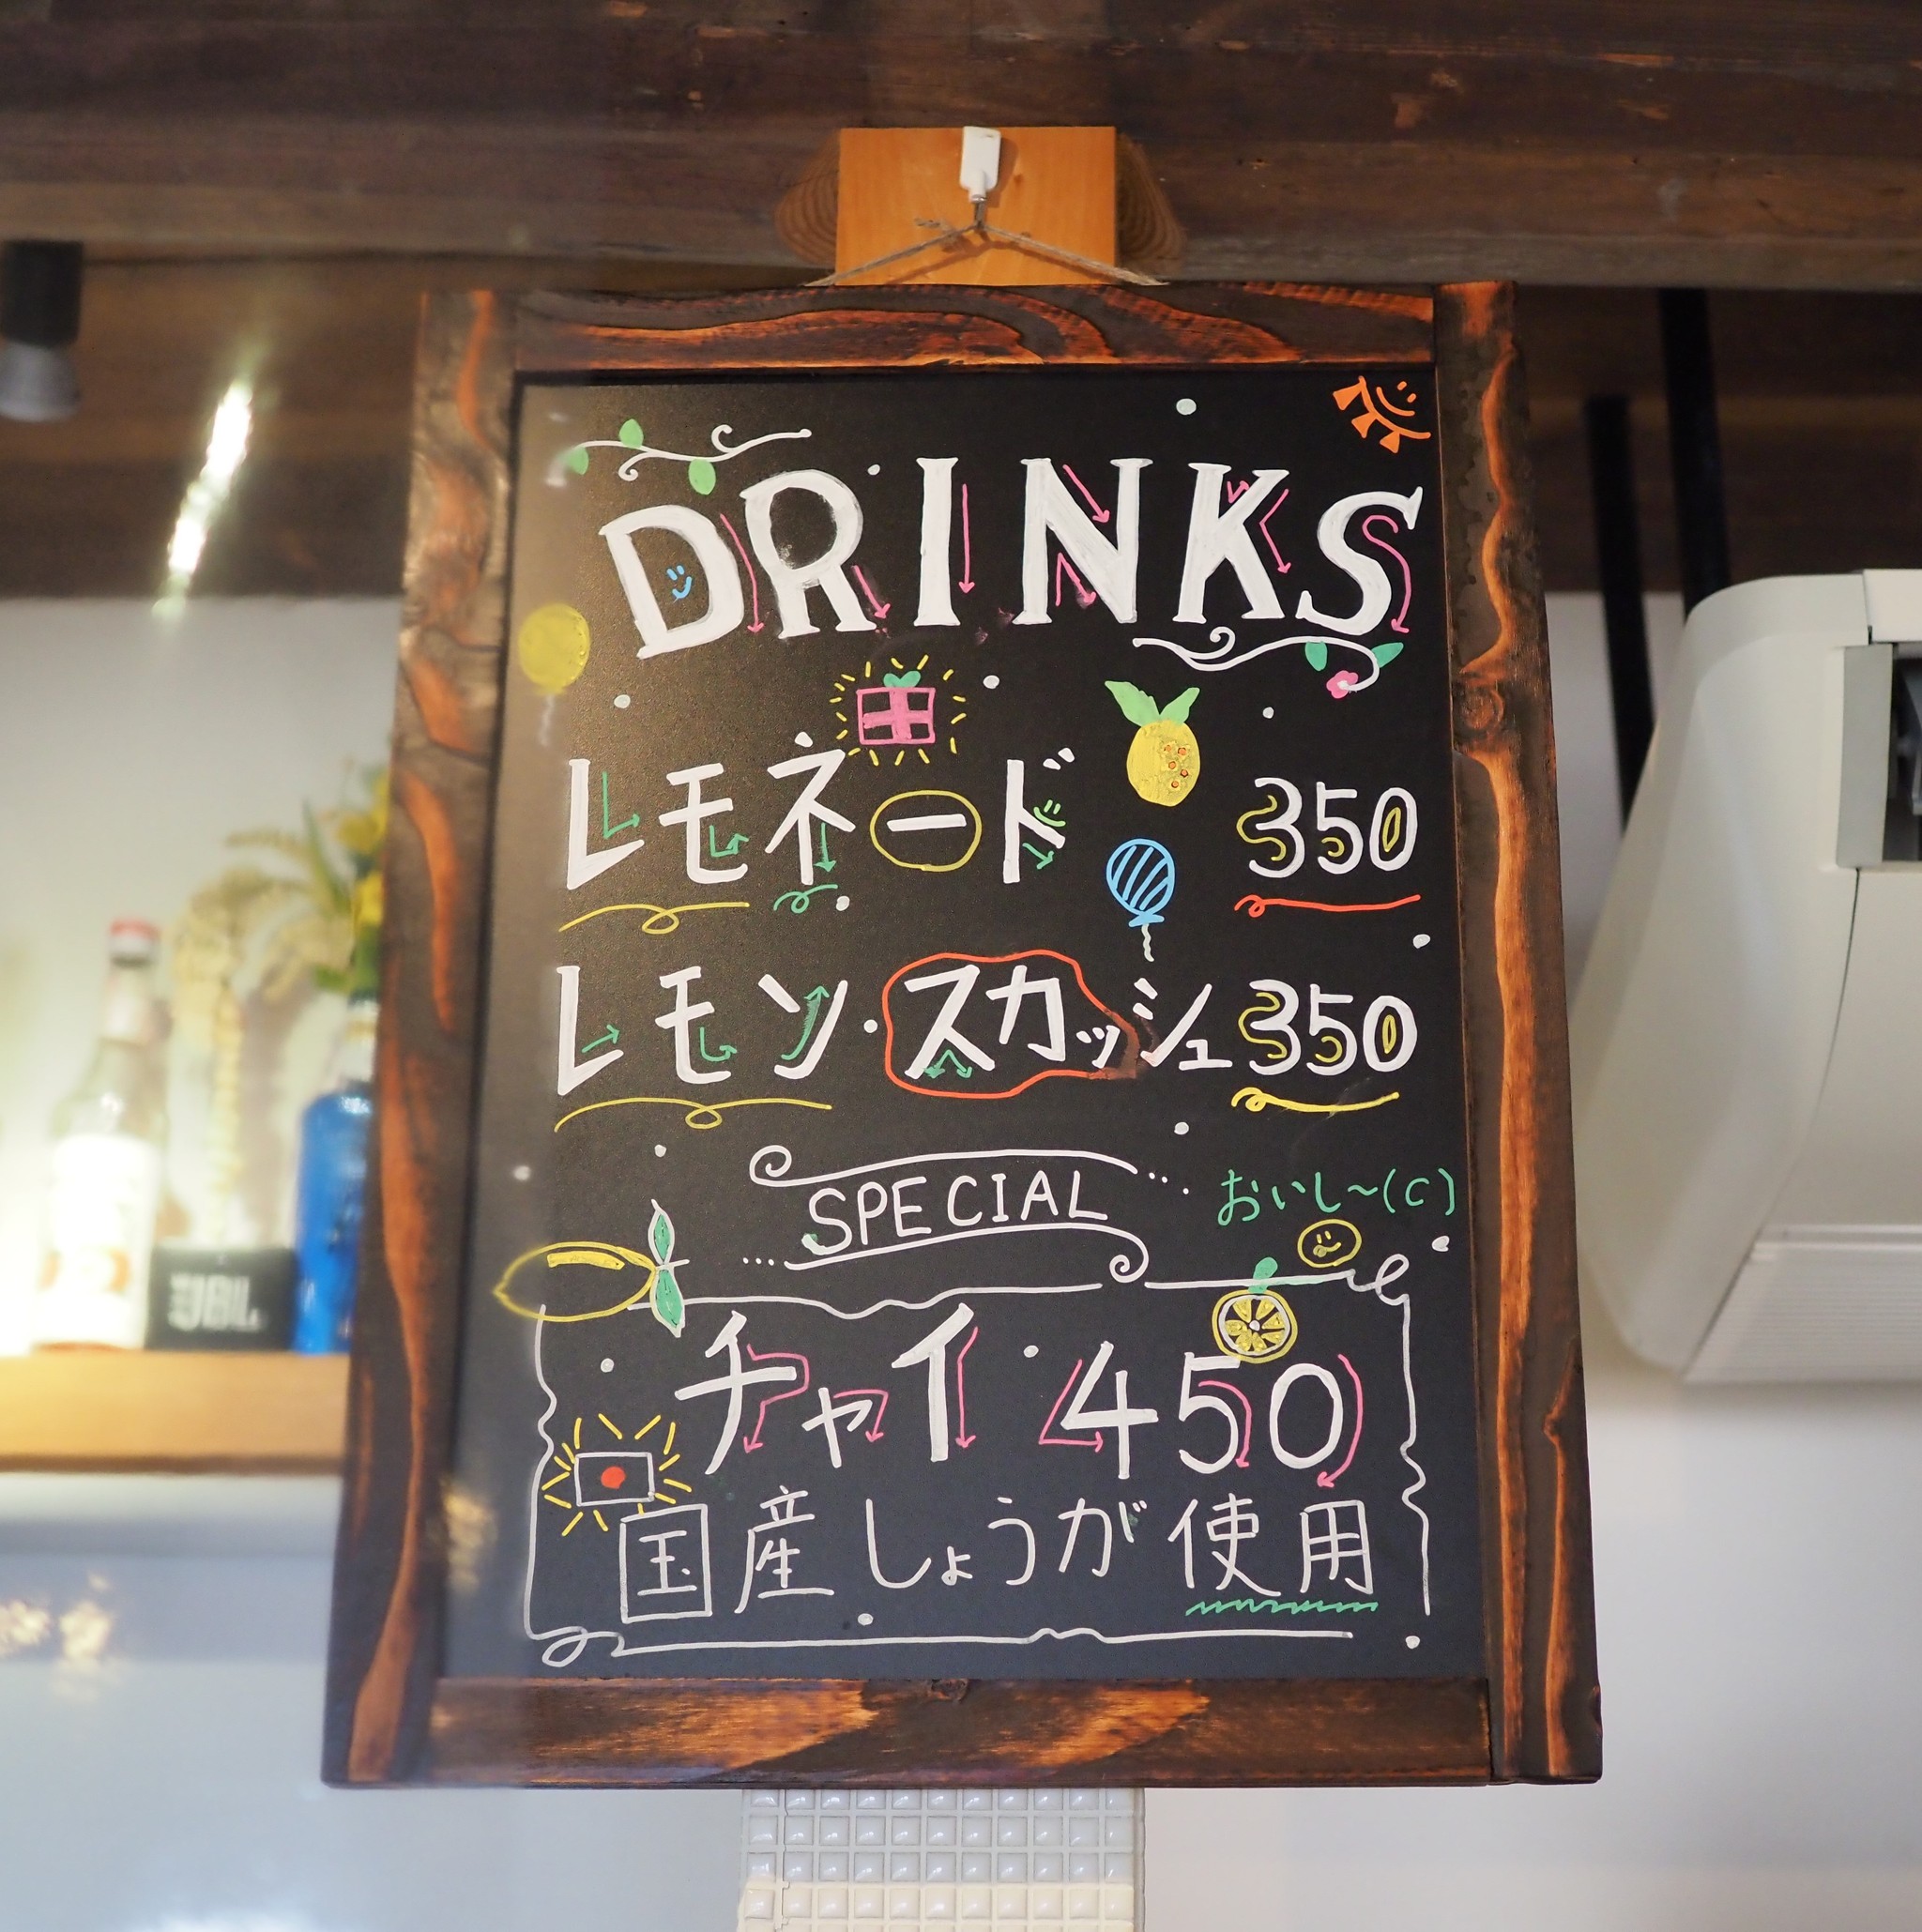 DRINKS
レモネード 350
レモン・スカッシュ 350
SPECIAL
おいし〜(C)
チャイ 450
国産しょうが使用
JBL